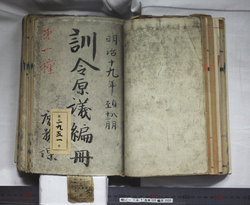 明治十九年 自八月
至十二月
訓令原議編冊
第一種
二九五一
庶務課